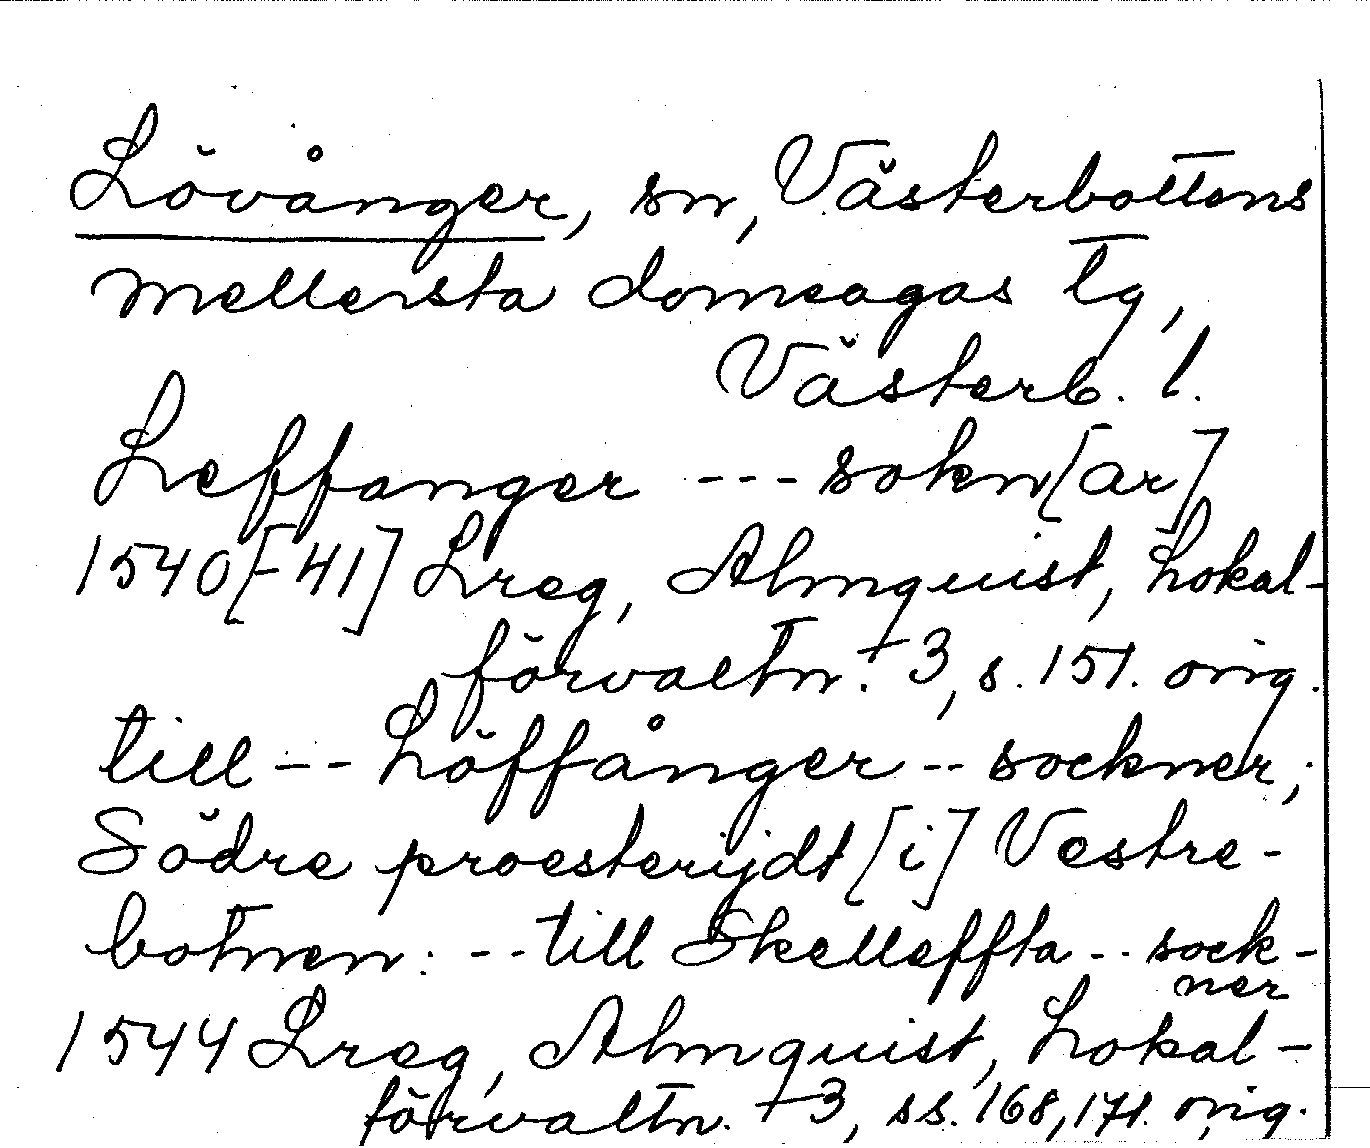 Lövånger, sn, Västerbottens
mellersta domsagas tg,
Västerb. l.
Leffanger --- sokn[ar]
1540[-41] Lreg, Almquist, Lokal-
förvaltn. + 3, s. 151. orig.
till --- Löffånger -- sockner;
Södre proesterijdt [i] Vestre-
botnen: -- till Skelleffta -- sock-
ner
1544 Lreg, Almquist, Lokal-
förvaltn. + 3, ss. 168, 171. orig.